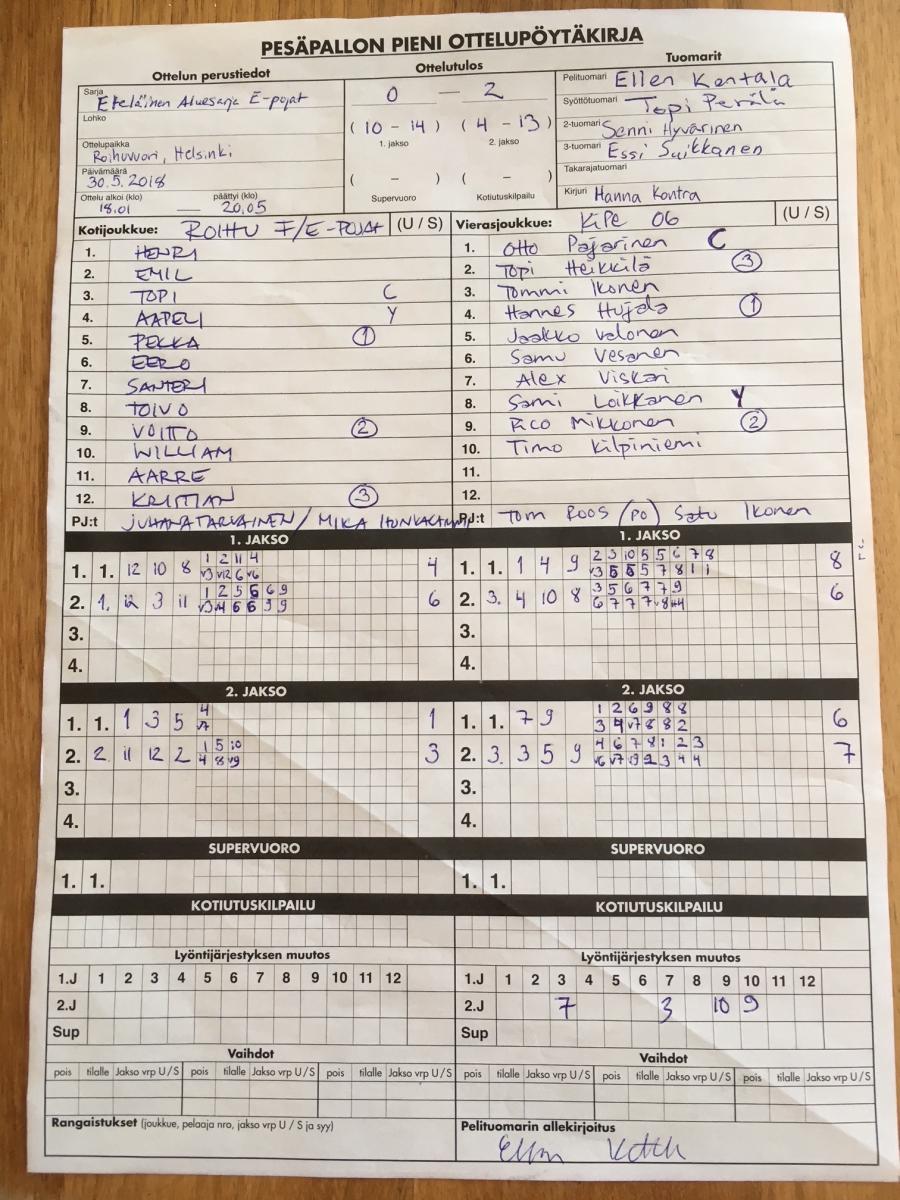 PESÄPALLON PIENI OTTELUPÖYTÄKIRJA
Ottelun perustiedot
Sarja
Eteläinen Aluesarja E-pojat
Lohko
Ottelupaikka
Roihuvuori, Helsinki
Päivämäärä
30.5.2018
Ottelu alkoi (klo) päättyi (klo)
18.01 — 20.05
Ottelutulos
0 — 2
(10 - 14) (4 - 13)
1. jakso 2. jakso
( - ) ( - )
Supervuoro Kotiutuskilpailu
Tuomarit
Pelituomari Ellen Kentala
Syöttötuomari Topi Perälä
2-tuomari Senni Hyvärinen
3-tuomari Essi Suikkanen
Takarajatuomari
Kirjuri Hanna Kontra
Kotijoukkue: ROIHU F/E-POJAT (U / S)
1. HENRI
2. EMIL
3. TOPI C
4. AAPELI Y
5. PEKKA 1
6. EERO
7. SANTERI
8. TOIVO
9. VOITTO 2
10. WILLIAM
11. AARRE
12. KRISTIAN 3
PJ:t JUHANA TARVAINEN / MIKA
Vierasjoukkue: KiPe 06 (U / S)
1. Otto Pajarinen C
2. Topi Heikkilä 3
3. Tommi Ikonen
4. Hannes Hujala 1
5. Jaakko Valonen
6. Samu Vesanen
7. Alex Viskari
8. Sami Loikkanen Y
9. Rico Mikkonen 2
10. Timo Kilpiniemi
11.
12.
PJ:t Tom Roos (PO) Satu Ikonen
1. JAKSO
1. 1. 12 10 8 1 2 11 4 4
v3 v12 6 v6
2. 1. 12 3 11 1 2 5 6 6 9 6
v3 v4 6 6 9 9
3.
4.
1. JAKSO
1. 1. 1 4 9 2 3 10 5 5 6 7 8 8
v3 5 6 5 7 8 1 1
2. 3. 4 10 8 3 5 6 7 7 9 6
6 7 7 7 v8
3.
4.
2. JAKSO
1. 1. 1 3 5 4 1
v7
2. 2. 11 12 2 1 5 10 3
4 8 v9
3.
4.
2. JAKSO
1. 1. 7 9 1 2 6 9 8 8 6
3 4 v7 8 8 2
2. 3. 3 5 9 4 6 7 8 1 2 3 7
v6 v7 v9 2 3 4 4
3.
4.
SUPERVUORO
1. 1.
SUPERVUORO
1. 1.
KOTIUTUSKILPAILU
KOTIUTUSKILPAILU
Lyöntijärjestyksen muutos
1.J 1 2 3 4 5 6 7 8 9 10 11 12
2.J
Sup
Lyöntijärjestyksen muutos
1.J 1 2 3 4 5 6 7 8 9 10 11 12
2.J 7 3 10 9
Sup
Vaihdot
pois tilalle Jakso vrp U / S pois tilalle Jakso vrp U / S pois tilalle Jakso vrp U / S
Vaihdot
pois tilalle Jakso vrp U / S pois tilalle Jakso vrp U / S pois tilalle Jakso vrp U / S
Rangaistukset (joukkue, pelaaja nro, jakso vrp U / S ja syy)
Pelituomarin allekirjoitus